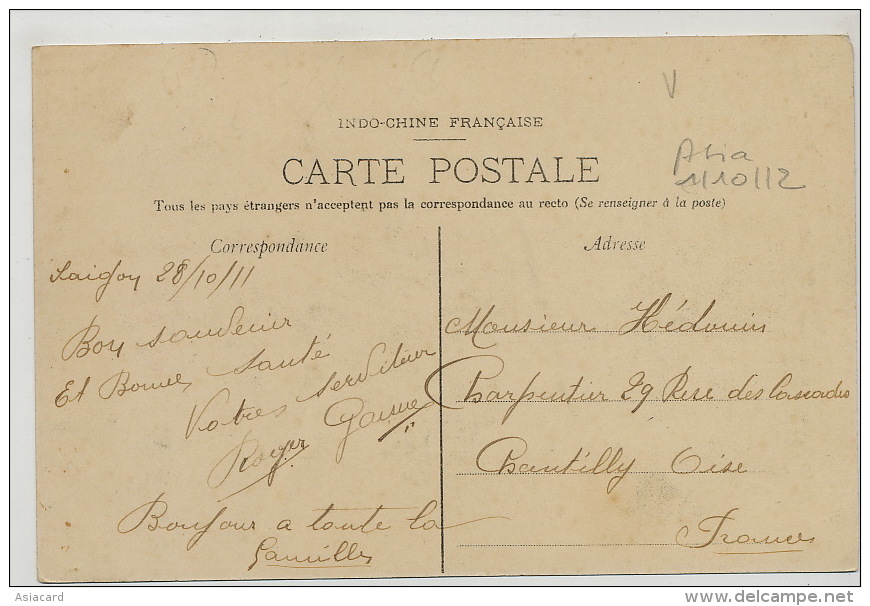 INDO-CHINE FRANÇAISE
CARTE POSTALE
Tous les pays étrangers n'acceptent pas la correspondance au recto (Se renseigner à la poste)
V
Asia
1/10/12
Correspondance
Saigon 28/10/11
Bon souvenir
Et Bonne santé
Votres serviteur
Roger
Bonjour a toute la
familles
Adresse
Monsieur Hédouin
Charpentier 29 Rue des Cascades
Chantilly Oise
France
Asiacard
delcampe.net